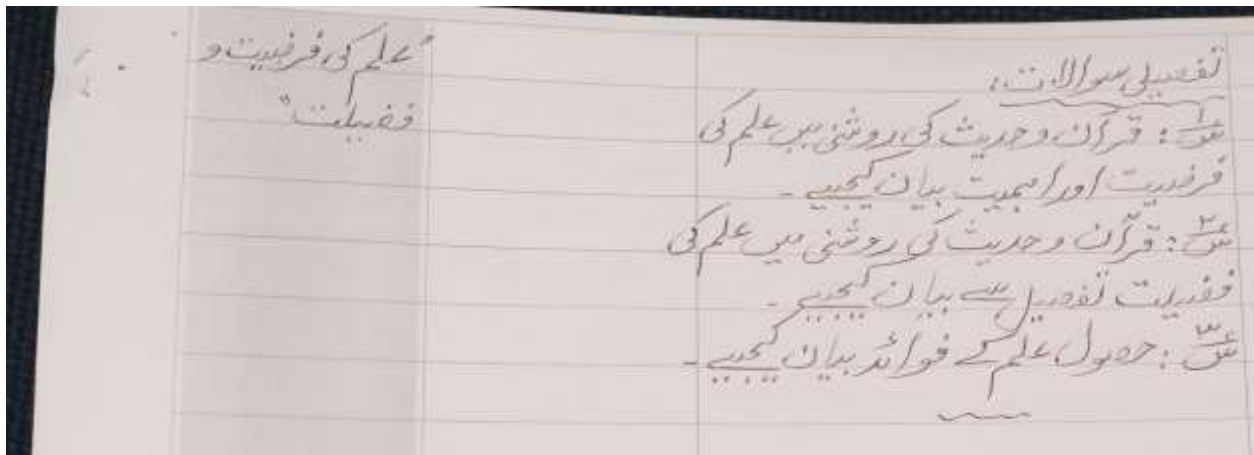 تفصیلی سوالات:
س۱: قرآن و حدیث کی روشنی میں علم کی
فرضیت اور اہمیت بیان کیجیے۔
س۲: قرآن و حدیث کی روشنی میں علم کی
فضیلت تفصیل سے بیان کیجیے۔
س۳: حصول علم کے فوائد بیان کیجیے۔
"علم کی فرضیت و
فضیلت"